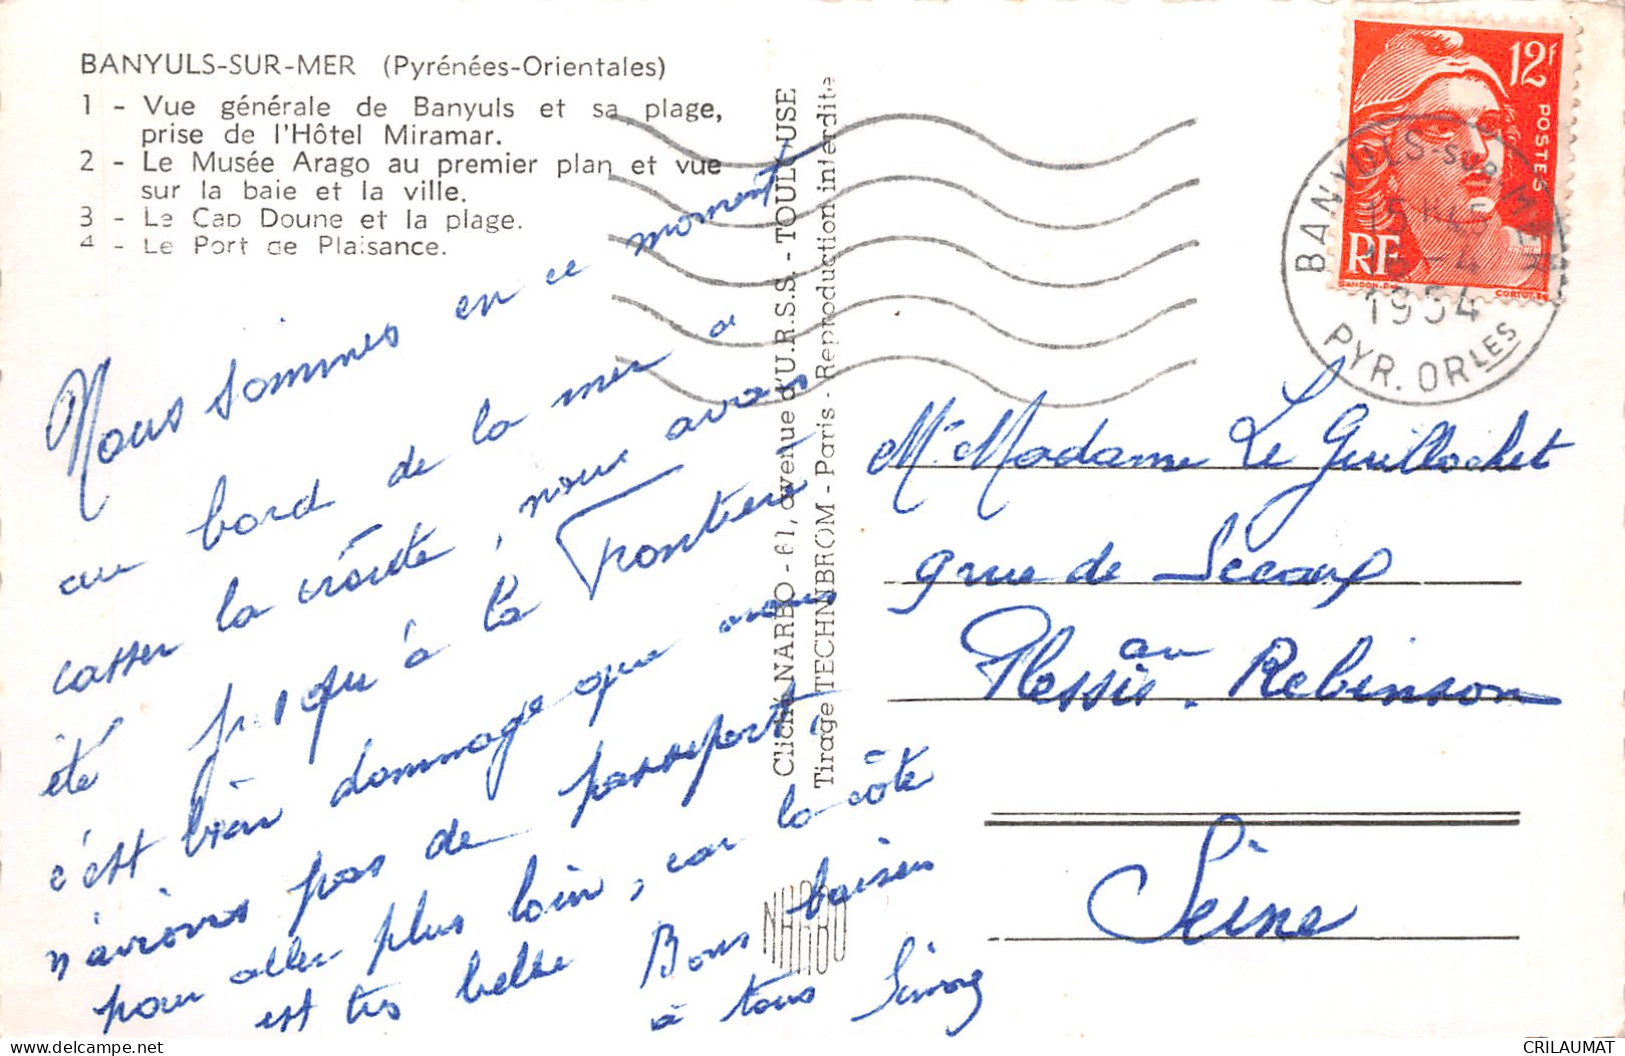 BANYULS-SUR-MER (Pyrénées-Orientales)
1 - Vue générale de Banyuls et sa plage,
prise de l'Hôtel Miramar.
2 - Le Musée Arago au premier plan et vue
sur la baie et la ville.
3 - Le Cap Doune et la plage.
4 - Le Port de Plaisance.
Nous sommes en ce moment
au bord de la mer a
casser la croûte, nous avons
été jusqu'à la Frontière
c'est bien dommage que nous
n'avions pas de passeport,
pour aller plus loin, car la côte
est très belle Bons baisers
à tous Simon
Cliché NARBO - 61, avenue d'U.R.S.S. - TOULOUSE
Tirage TECHNIBROM - Paris - Reproduction interdite
NARBO
12f
POSTES
RF
GANDON.Del
CORTOT.Sc
BANYULS-SUR-MER
15H45
1954
PYR. ORLES
Mr Madame Le Guillochet
9 rue de Sceaux
Plessis-Rebinson
au
Seine
CRILAUMAT